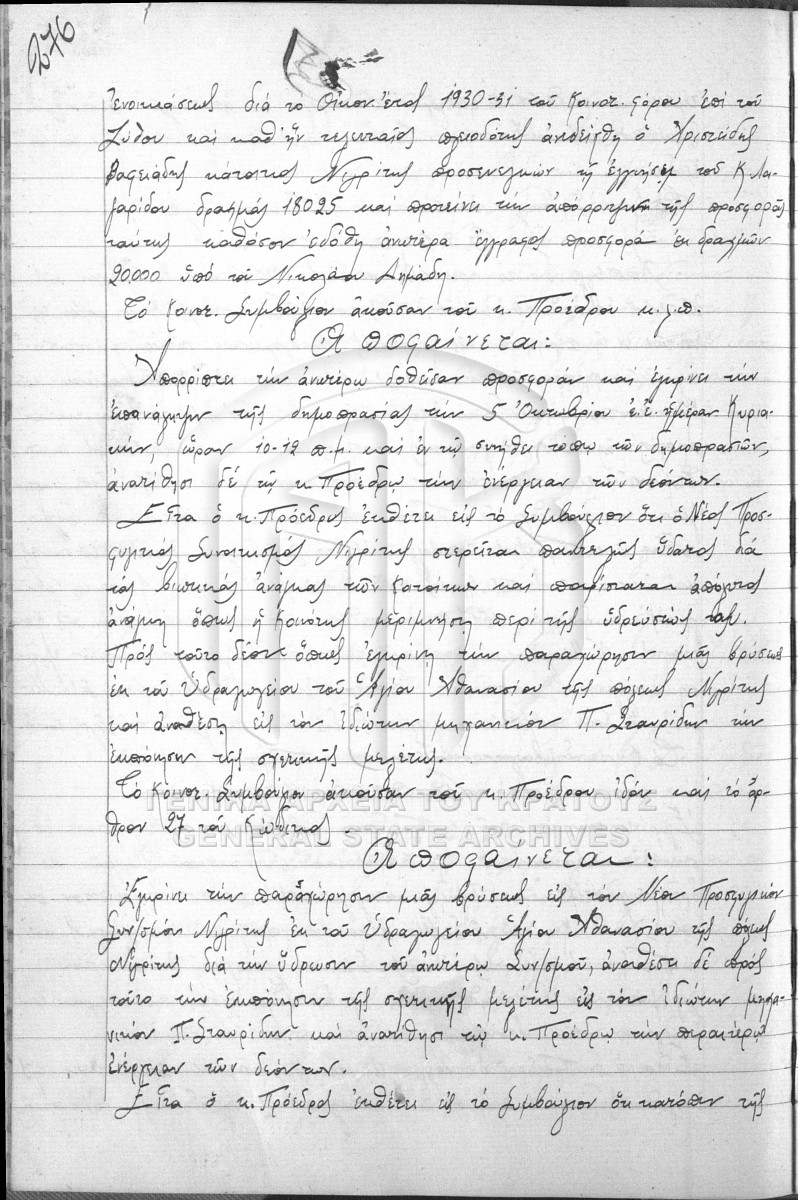 276
ἐνοικιάσεως διά το Οἰκον. ἔτος 1930-31 τοῦ Κοινοτ. φόρου ἐπί τοῦ
ζύθου καί καθ' ἥν τελευταῖος πλειοδότης ἀνεδείχθη ὁ Χρηστίδης
Βαφειάδης κάτοικος Νιγρίτης προσενεγκών τῇ ἐγγυήσει τοῦ Κ. Λα-
ζαρίδου δραχμάς 18025 καί προτείνει την ἀπόρριψιν τῆς προσφορᾶς
ταύτης καθόσον ἐδόθη ἀνωτέρα ἔγγραφος προσφορά ἐκ δραχμῶν
20.000 ὑπό τοῦ Νικολάου Δημάδη.
Τό Κοινοτ. Συμβούλιον ἀκοῦσαν τοῦ κ. Προέδρου κ.λ.π.
Ἀποφαίνεται:
Ἀπορρίπτει τήν ἀνωτέρω δοθεῖσαν προσφοράν καί ἐγκρίνει την
ἐπανάληψιν τῆς δημοπρασίας τήν 5 Ὀκτωβρίου ἐ.ἔ. ἡμέραν Κυρια-
κήν, ὥραν 10-12 π.μ. καί ἐν τῷ συνήθει τόπῳ τῶν δημοπρασιῶν,
ἀνατίθησι δέ τῷ κ. Προέδρῳ τήν ἐνέργειαν τῶν δεόντων.
Εἶτα ὁ κ. Πρόεδρος ἐκθέτει εἰς τό Συμβούλιον ὅτι ὁ Νέος Προσ-
φυγικός Συνοικισμός Νιγρίτης στερεῖται παντελῶς ὕδατος διά
τάς βιωτικάς ἀνάγκας τῶν κατοίκων καί παρίσταται ἀπόλυτος
ἀνάγκη ὅπως ἡ Κοινότης μεριμνήσῃ περί τῆς ὑδρεύσεώς των.
Πρός τοῦτο δέον ὅπως ἐγκρίνῃ τήν παραχώρησιν μιᾶς βρύσεως
ἐκ τοῦ Ὑδραγωγείου τοῦ Ἁγίου Ἀθανασίου τῆς πόλεως Νιγρίτης
καί ἀναθέσῃ εἰς τόν ἰδιώτην μηχανικόν Π. Σταυρίδην τήν
ἐκπόνησιν τῆς σχετικῆς μελέτης.
Τό Κοινοτ. Συμβούλιον ἀκοῦσαν τοῦ κ. Προέδρου ἰδόν καί τό ἄρ-
θρον 27 τοῦ Κώδικος.
ΓΕΝΙΚΑ ΑΡΧΕΙΑ ΤΟΥ ΚΡΑΤΟΥΣ
GENERAL STATE ARCHIVES
Ἀποφαίνεται:
Ἐγκρίνει τήν παραχώρησιν μιᾶς βρύσεως εἰς τόν Νέον Προσφυγικόν
Συν/σμόν Νιγρίτης ἐκ τοῦ Ὑδραγωγείου Ἁγίου Ἀθανασίου τῆς πόλεως
Νιγρίτης διά τήν ὕδρευσιν τοῦ ἀνωτέρω Συν/σμοῦ, ἀναθέτει δέ πρός
τοῦτο τήν ἐκπόνησιν τῆς σχετικῆς μελέτης εἰς τόν ἰδιώτην μηχα-
νικόν Π. Σταυρίδην καί ἀνατίθησι τῷ κ. Προέδρῳ τήν περαιτέρω
ἐνέργειαν τῶν δεόντων.
Εἶτα ὁ κ. Πρόεδρος ἐκθέτει εἰς τό Συμβούλιον ὅτι κατόπιν τῆς